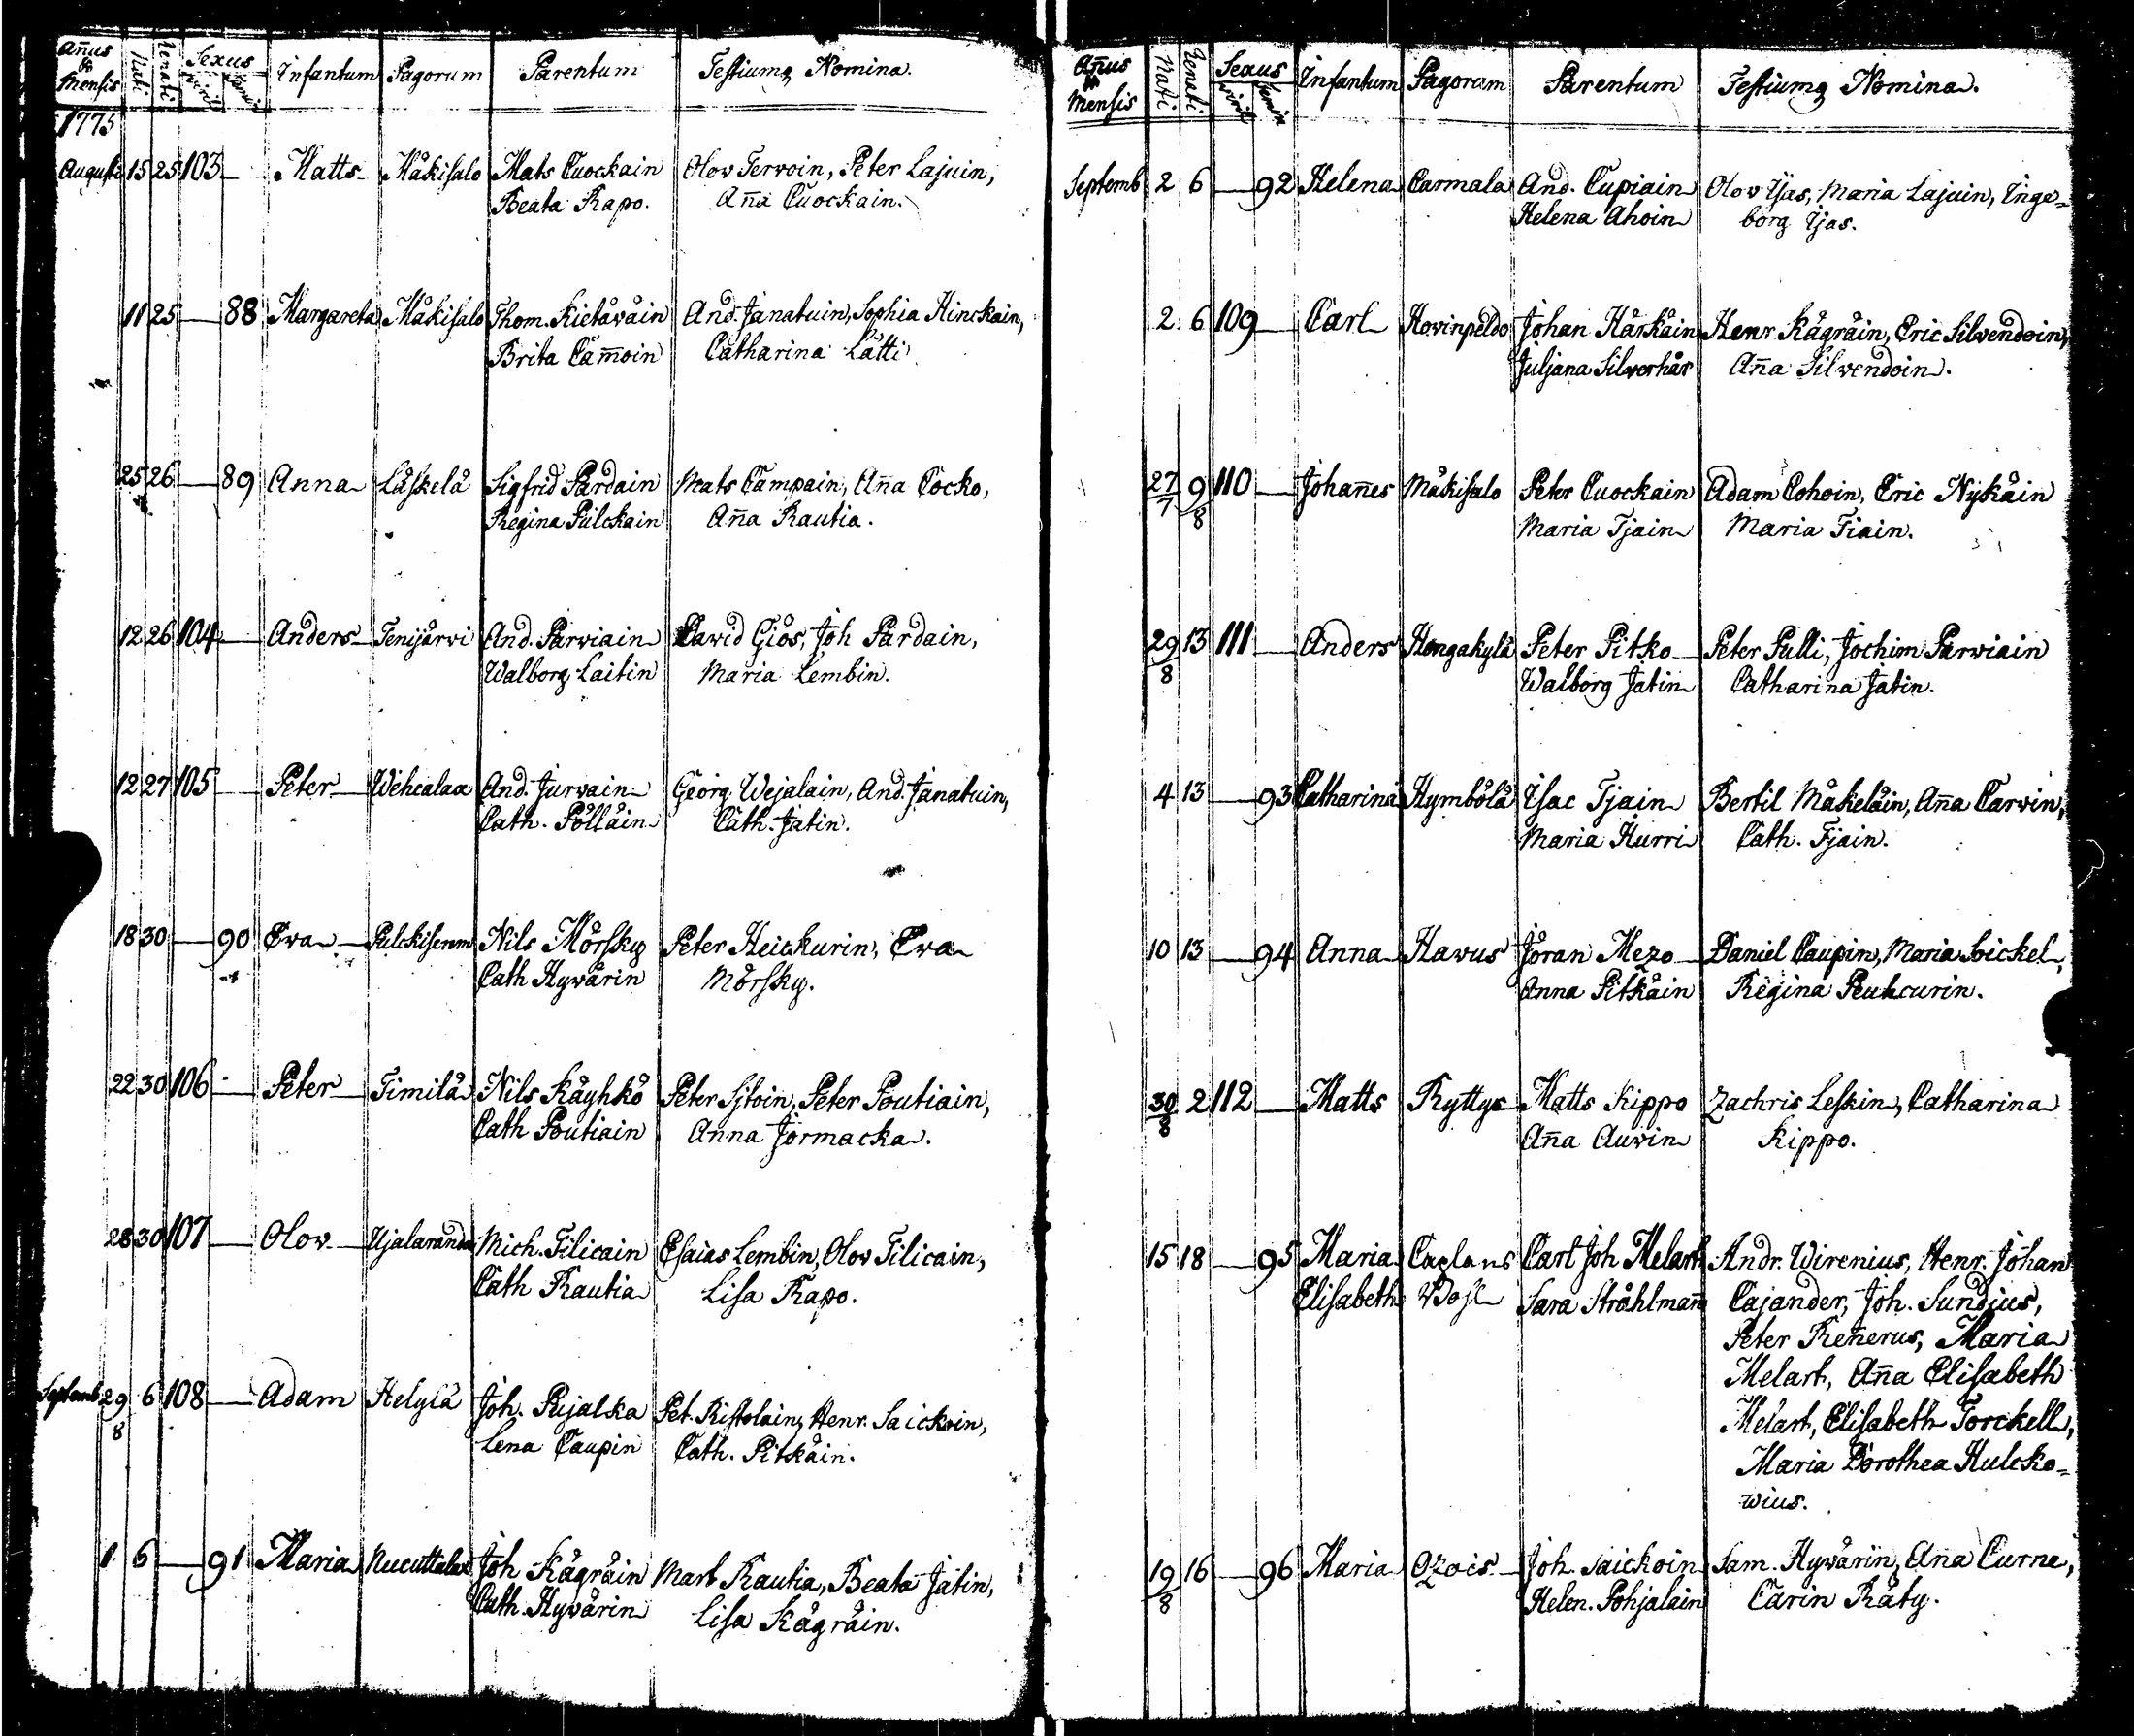 Añus & Mensis Nati Renati Sexus viril femin Infantum Pagorum Parentum Testiumq Nomina.
1775
Augusti 15 25 103 — Matts Mäkisalo Mats Cuockain Olov Tervoin, Peter Lajuin,
Beata Rapo. Aña Cuockain.
11 25 — 88 Margareta Mäkisalo Thom. Kietäväin And. Janatuin, Sophia Hinckain,
Brita Cam̄oin Catharina Lätti
25 26 — 89 Anna Läskelä Sigfrid Pardain Mats Campain, Aña Cocko,
Regina Pulckain Aña Rautia.
12 26 104 — Anders Tenijärvi And. Parviain David Giös, Joh Pardain,
Walborg Laitin Maria Lembin.
12 27 105 — Peter Wehcalax And. Jurvain Georg Wejalain, And. Janatuin,
Cath. Pölläin Cath. Jatin.
18 30 — 90 Eva Pulckiserem Nils Mörsky Peter Heickurin, Eva
Cath Hyvärin Mörsky.
22 30 106 — Peter Timilä Nils Käyhkö Peter Sitoin, Peter Poutiain,
Cath Poutiain Anna Jormacka.
28 30 107 — Olov Ujalaranda Mich. Tilicain Esaias Lembin, Olov Tilicain,
Cath Rautia Lisa Rapo.
Septemb 29/8 6 108 — Adam Helylä Joh. Pujalka Pet. Ristolain, Henr. Saickoin,
Lena Caupin Cath. Pitkäin.
1 6 — 91 Maria Nucuttalax Joh Kägräin Mart Rautia, Beata Jätin,
Cath. Hyvärin Lisa Kägräin.
Añus & Mensis Nati Renati Sexus viril femin Infantum Pagorum Parentum Testiumq Nomina.
Septemb 2 6 — 92 Helena Carmala And. Cupiain Olov Ijas, Maria Lajuin, Inge=
Helena Ahoin borg Ijas.
2 6 109 — Carl Hovinpeldo Johan Härkäin Henr Kägräin, Eric Silvendoin,
Juljana Silverhär Aña Silvendoin.
27/7 9/8 110 — Johañes Mäkisalo Peter Cuockain Adam Cohoin, Eric Nykäin
Maria Tjain Maria Tiain.
29/8 13 111 — Anders Hongakylä Peter Pitko Peter Pulli, Jochim Parviain
Walborg Jatin Catharina Jatin.
4 13 — 93 Catharina Hymbölä Isac Tjain Bertil Mäkeläin, Aña Carvin,
Maria Hurri Cath. Tjain.
10 13 — 94 Anna Havus Jöran Mezo Daniel Caupin, Maria Soickel,
Anna Pitkäin Regina Peuhcurin.
30/8 2 112 — Matts Ryttys Matts Kippo Zachris Leskin, Catharina
Aña Auvin Kippo.
15 18 — 95 Maria Caplans Carl Joh Melart Andr. Wirenius, Henr. Johan
Elisabeth Bosl Sara Stråhlmañ Cajander, Joh. Sundius,
Peter Reñerus, Maria
Melart, Aña Elisabeth
Melart, Elisabeth Torckell,
Maria Dorothea Hulcko=
wius.
19/8 16 — 96 Maria Ozois Joh. Saickoin Sam. Hyvärin, Ana Curne,
Helen. Pohjalain Carin Räty.